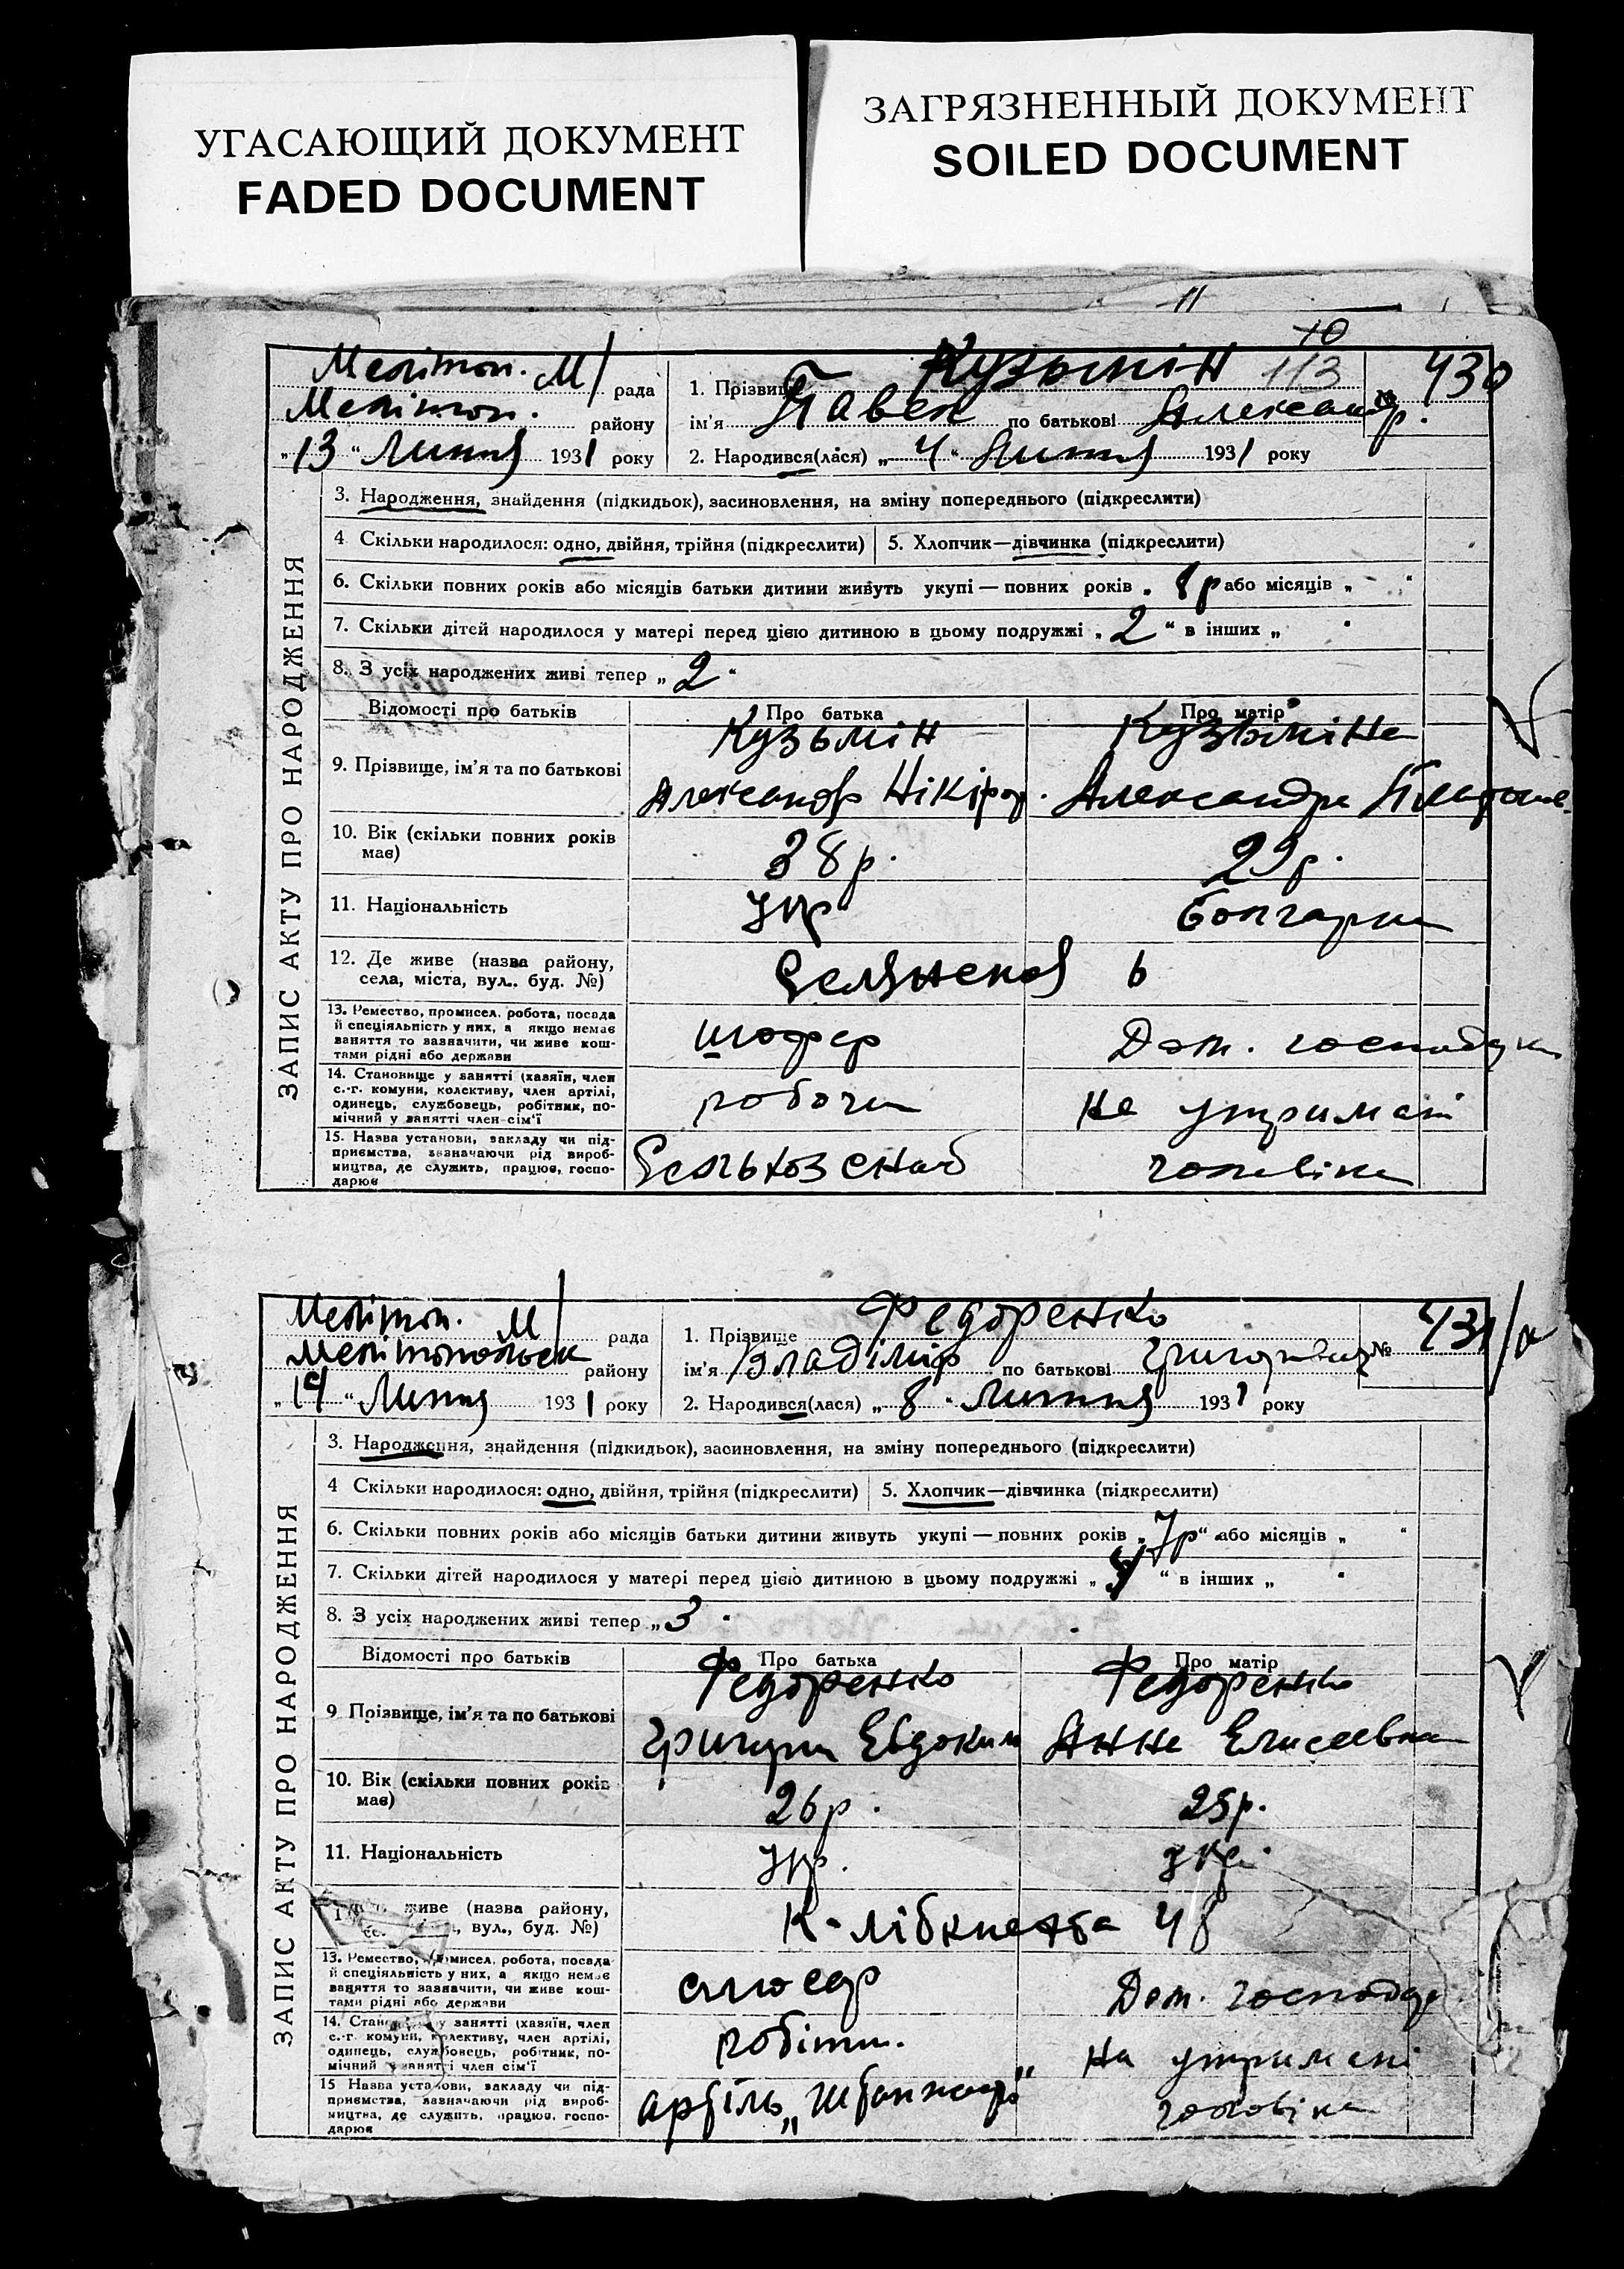 УГАСАЮЩИЙ ДОКУМЕНТ
FADED DOCUMENT
ЗАГРЯЗНЕННЫЙ ДОКУМЕНТ
SOILED DOCUMENT
11
10
113
Мелітоп. М/ рада
Мелітоп. району
„13 “ Липня 1931 року
1. Прізвище Кузьмін
№ 430
ім'я Павел по батькові Александр.
2. Народився(лася) „ 4 “ Липня 1931 року
ЗАПИС АКТУ ПРО НАРОДЖЕННЯ
3. Народження, знайдення (підкидьок), засиновлення, на зміну попереднього (підкреслити)
4 Скільки народилося: одно, двійня, трійня (підкреслити)
5. Хлопчик—дівчинка (підкреслити)
6. Скільки повних років або місяців батьки дитини живуть укупі — повних років „ 8 р або місяців „ “
7. Скільки дітей народилося у матері перед цією дитиною в цьому подружжі „ 2 “ в інших „ “
8. З усіх народжених живі тепер „ 2 “
Відомості про батьків Про батька Про матір
9. Прізвище, ім'я та по батькові
Кузьмін Кузьміна
Александр Нікіфор. Александра
10. Вік (скільки повних років має) 38 р. 29 р.
11. Національність Укр болгарка
12. Де живе (назва району, села, міста, вул.. буд. №) 6
13. Ремество, промисел, робота, посада й спеціяльність у них, а якщо немає заняття то зазначити, чи живе коштами рідні або держави
шофер Дом. господарка
14. Становище у занятті (хазяїн, член с.-г. комуни, колективу, член артілі, одинець, службовець, робітник, помічний у занятті член-сім'ї
робочи На утримані
15. Назва установи, закладу чи підприємства, зазначаючи рід виробництва, де служить, працює, господарює
Сельхозснаб чоловіка
Мелітоп. М/ рада
Мелітопольск району
„14 “ Липня 1931 року
1. Прізвище Федоренко
№ 431/а
ім'я Владімір по батькові Григорьевич
2. Народився(лася) „ 8 “ Липня 1931 року
ЗАПИС АКТУ ПРО НАРОДЖЕННЯ
3. Народження, знайдення (підкидьок), засиновлення, на зміну попереднього (підкреслити)
4 Скільки народилося: одно, двійня, трійня (підкреслити)
5. Хлопчик—дівчинка (підкреслити)
6. Скільки повних років або місяців батьки дитини живуть укупі — повних років „ 7р “ або місяців „ “
7. Скільки дітей народилося у матері перед цією дитиною в цьому подружжі „ “ в інших „ “
8. З усіх народжених живі тепер „ 3
Відомості про батьків Про батька Про матір
9 Прізвище, ім'я та по батькові
Федоренко Федоренко
Григори Евдоким Анна Елисеевна
10. Вік (скільки повних років має) 26 р. 25 р.
11. Національність Укр. укр.
живе (назва району, вул., буд. №) К-лібкнехта 48
13. Ремество, промисел, робота, посада й спеціяльність у них, а якщо немає заняття то зазначити, чи живе коштами рідні або держави
слюсар Дом. господар
14. Становище у занятті (хазяїн, член с.-г. комуни, колективу, член артілі, одинець, службовець, робітник, помічний у занятті член сім'ї
робітн. На утримані
15 Назва установи, закладу чи підприємства, зазначаючи рід виробництва, де служить, працює, господарює
артіль чоловіка